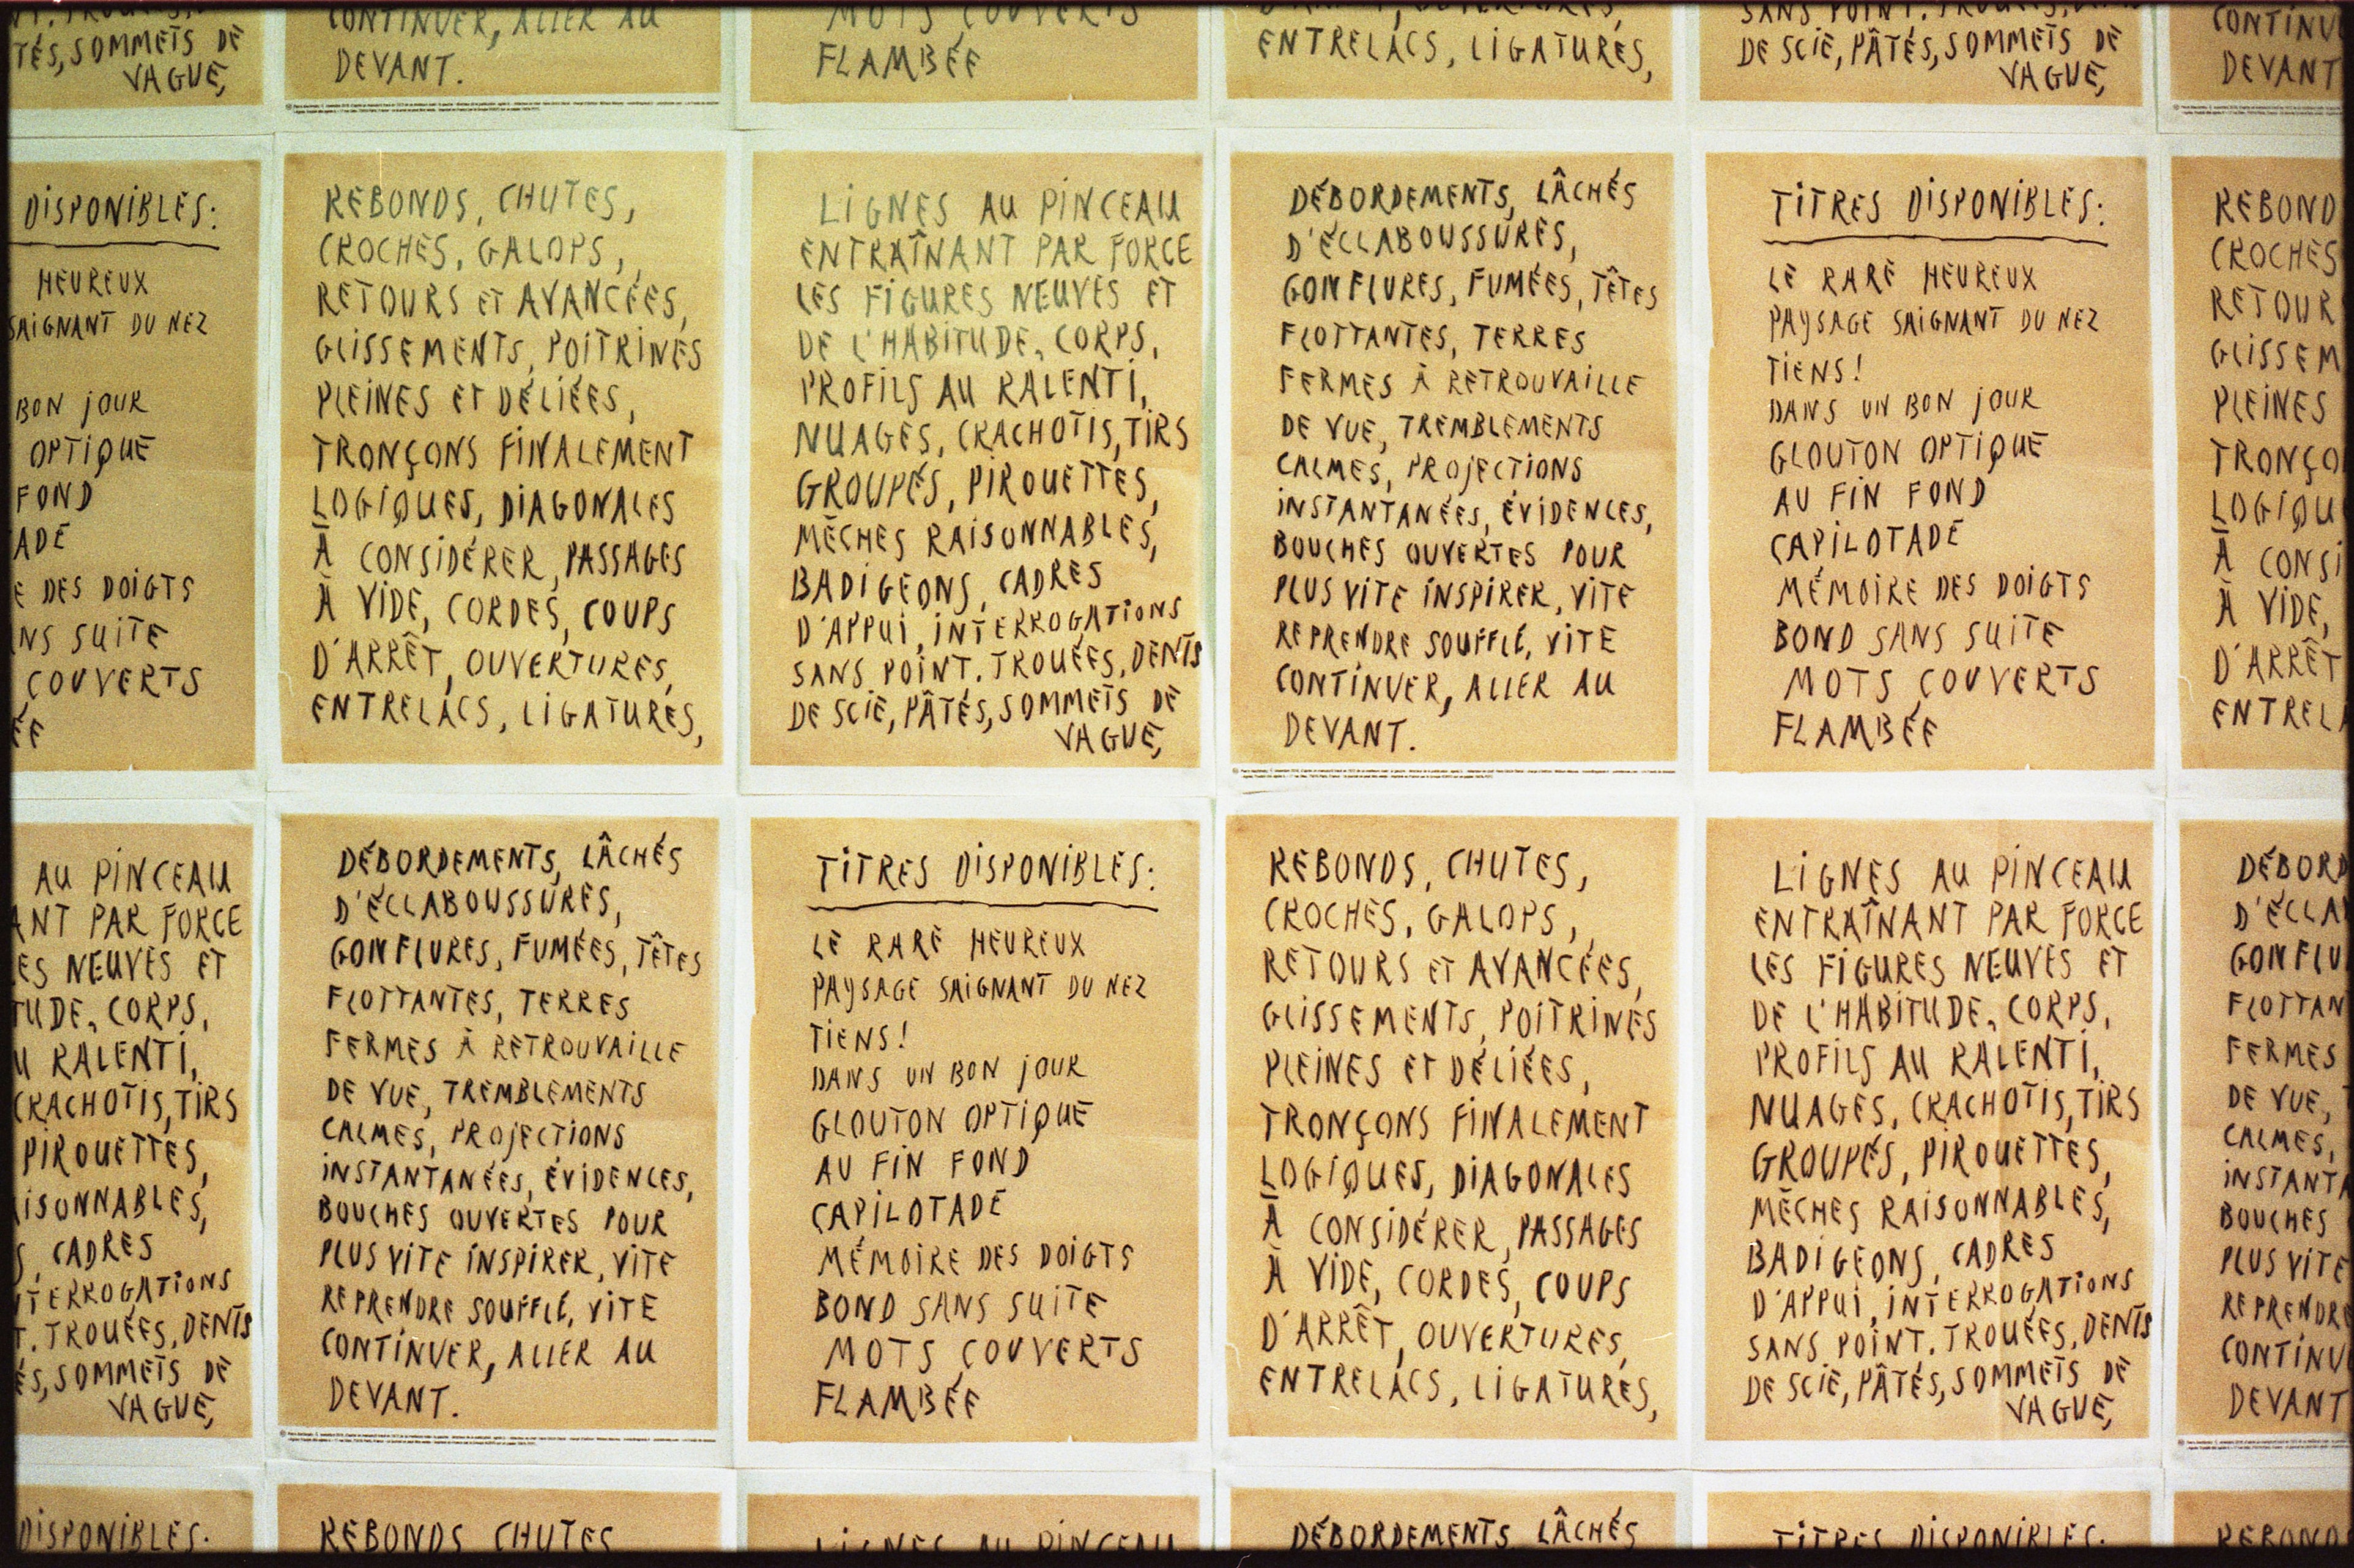 TÉS, SOMMETS DE
VAGUE,
CONTINUER, ALLER AU
DEVANT.
MOTS COUVERTS
FLAMBÉE
ENTRELACS, LIGATURES,
SANS POINT. TROUÉES,
DE SCIE, PÂTÉS, SOMMETS DE
VAGUE,
CONTINU
DEVANT
DISPONIBLES:
HEUREUX
SAIGNANT DU NEZ
BON JOUR
OPTIQUE
FOND
ADE
E DES DOIGTS
NS SUITE
COUVERTS
ÉE
REBONDS, CHUTES,
CROCHES, GALOPS,
RETOURS ET AVANCÉES,
GLISSEMENTS, POITRINES
PLEINES ET DÉLIÉES,
TRONÇONS FINALEMENT
LOGIQUES, DIAGONALES
À CONSIDÉRER, PASSAGES
À VIDE, CORDES, COUPS
D'ARRÊT, OUVERTURES,
ENTRELACS, LIGATURES,
LIGNES AU PINCEAU
ENTRAÎNANT PAR FORCE
LES FIGURES NEUVES ET
DE L'HABITUDE, CORPS,
PROFILS AU RALENTI,
NUAGES, CRACHOTIS, TIRS
GROUPÉS, PIROUETTES,
MÈCHES RAISONNABLES,
BADIGEONS, CADRES
D'APPUI, INTERROGATIONS
SANS POINT. TROUÉES, DENTS
DE SCIE, PÂTÉS, SOMMETS DE
VAGUE,
DÉBORDEMENTS, LÂCHÉS
D'ÉCLABOUSSURES,
GONFLURES, FUMÉES, TÊTES
FLOTTANTES, TERRES
FERMES À RETROUVAILLE
DE VUE, TREMBLEMENTS
CALMES, PROJECTIONS
INSTANTANÉES, ÉVIDENCES,
BOUCHES OUVERTES POUR
PLUS VITE INSPIRER, VITE
REPRENDRE SOUFFLE, VITE
CONTINUER, ALLER AU
DEVANT.
TITRES DISPONIBLES:
LE RARE HEUREUX
PAYSAGE SAIGNANT DU NEZ
TIENS!
DANS UN BON JOUR
GLOUTON OPTIQUE
AU FIN FOND
CAPILOTADE
MÉMOIRE DES DOIGTS
BOND SANS SUITE
MOTS COUVERTS
FLAMBÉE
REBOND
CROCHES
RETOUR
GLISSEM
PLEINES
TRONÇO
LOGIQU
À CONSI
À VIDE,
D'ARRÊT
ENTREL
AU PINCEAU
ANT PAR FORCE
ES NEUVES ET
TUDE, CORPS,
U RALENTI,
CRACHOTIS, TIRS
PIROUETTES,
AISONNABLES,
S, CADRES
TERROGATIONS
T. TROUÉES, DENTS
ÉS, SOMMETS DE
VAGUE,
DÉBORDEMENTS, LÂCHÉS
D'ÉCLABOUSSURES,
GONFLURES, FUMÉES, TÊTES
FLOTTANTES, TERRES
FERMES À RETROUVAILLE
DE VUE, TREMBLEMENTS
CALMES, PROJECTIONS
INSTANTANÉES, ÉVIDENCES,
BOUCHES OUVERTES POUR
PLUS VITE INSPIRER, VITE
REPRENDRE SOUFFLE, VITE
CONTINUER, ALLER AU
DEVANT.
TITRES DISPONIBLES:
LE RARE HEUREUX
PAYSAGE SAIGNANT DU NEZ
TIENS!
DANS UN BON JOUR
GLOUTON OPTIQUE
AU FIN FOND
CAPILOTADE
MÉMOIRE DES DOIGTS
BOND SANS SUITE
MOTS COUVERTS
FLAMBÉE
REBONDS, CHUTES,
CROCHES, GALOPS,
RETOURS ET AVANCÉES,
GLISSEMENTS, POITRINES
PLEINES ET DÉLIÉES,
TRONÇONS FINALEMENT
LOGIQUES, DIAGONALES
À CONSIDÉRER, PASSAGES
À VIDE, CORDES, COUPS
D'ARRÊT, OUVERTURES,
ENTRELACS, LIGATURES,
LIGNES AU PINCEAU
ENTRAÎNANT PAR FORCE
LES FIGURES NEUVES ET
DE L'HABITUDE, CORPS,
PROFILS AU RALENTI,
NUAGES, CRACHOTIS, TIRS
GROUPÉS, PIROUETTES,
MÈCHES RAISONNABLES,
BADIGEONS, CADRES
D'APPUI, INTERROGATIONS
SANS POINT. TROUÉES, DENTS
DE SCIE, PÂTÉS, SOMMETS DE
VAGUE,
DÉBORD
D'ÉCLA
GONFLU
FLOTTAN
FERMES
DE VUE,
CALMES,
INSTANTA
BOUCHES
PLUS VITE
REPRENDRE
CONTINU
DEVANT
DISPONIBLES:
REBONDS CHUTES
LIGNES AU PINCEAU
DÉBORDEMENTS, LÂCHÉS
TITRES DISPONIBLES:
REBOND